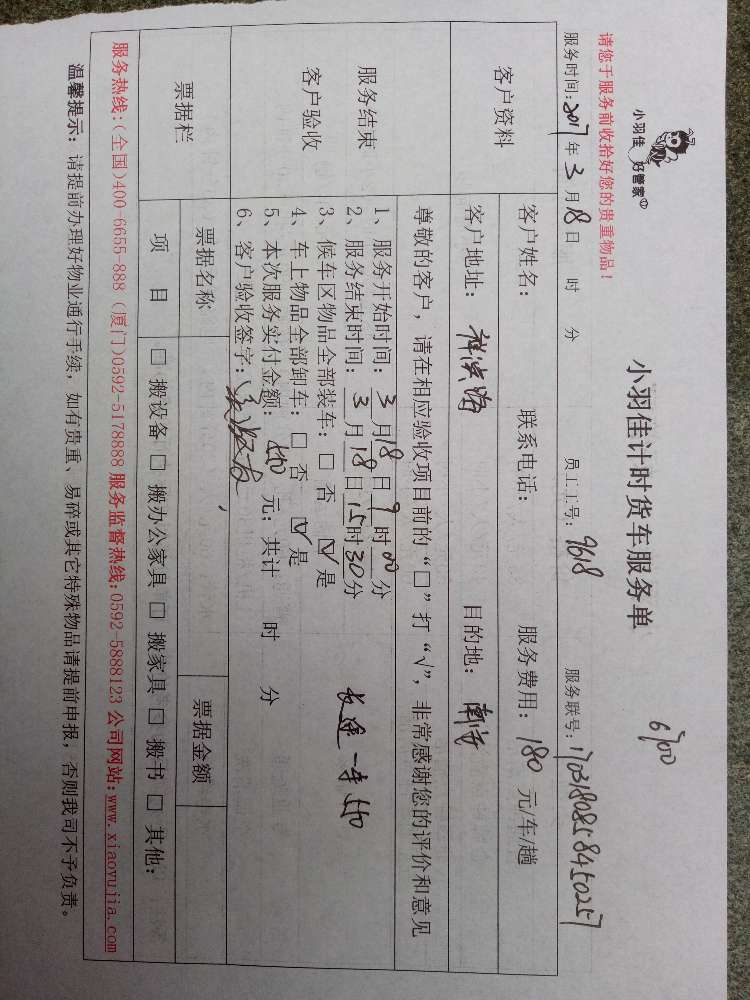 小羽佳 好管家
小羽佳计时货车服务单
请您于服务前收拾好您的贵重物品！
服务时间：2017年3月18日 时 分 员工工号：9618 服务联号：1703180858450257
客户资料
客户姓名： 联系电话： 服务费用：180元/车/趟
客户地址： 目的地：
尊敬的客户，请在相应验收项目前的“□”打“√”，非常感谢您的评价和意见
服务结束
客户验收
1、服务开始时间：3月18日9时00分
2、服务结束时间：3月18日15时30分
3、候车区物品全部装车：□ 否 ☑ 是
4、车上物品全部卸车：□ 否 ☑ 是
长途一车550
5、本次服务实付金额：550元；共计 时 分
6、客户验收签字：
票据栏
票据名称 票据金额
项 目 □ 搬设备 □ 搬办公家具 □ 搬家具 □ 搬书 □ 其他：
服务热线：(全国)400-6655-888 (厦门)0592-5178888 服务监督热线:0592-5888123 公司网站:www.xiaoyujia.com
温馨提示：请提前办理好物业通行手续，如有贵重、易碎或其它特殊物品请提前申报，否则我司不予负责。